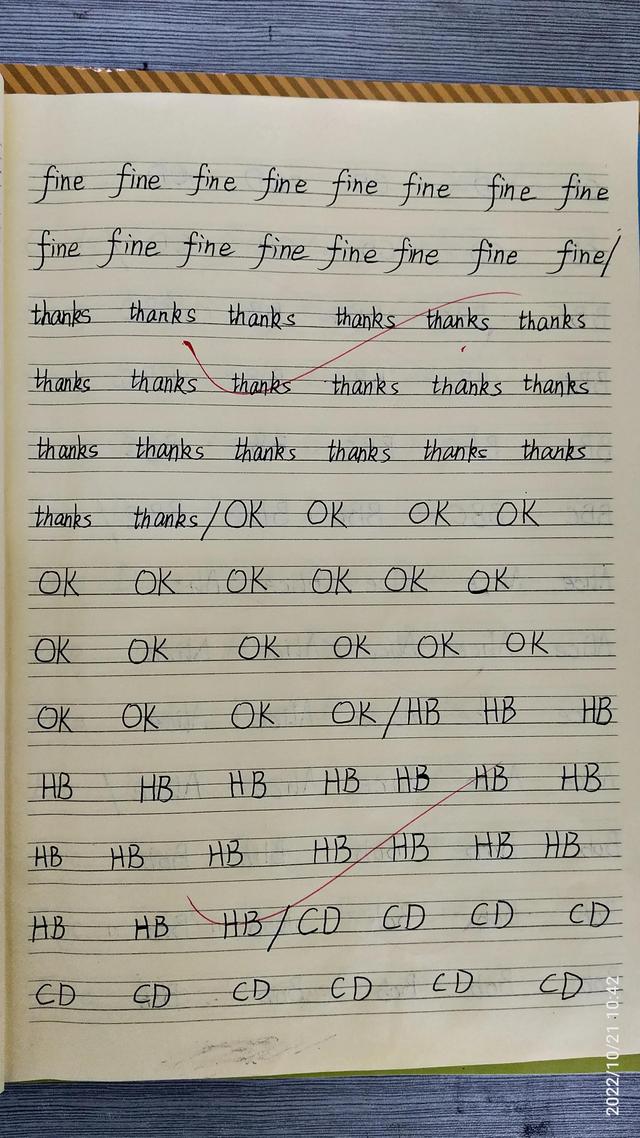 fine fine fine fine fine fine fine fine
fine fine fine fine fine fine fine fine/
thanks thanks thanks thanks thanks thanks
thanks thanks thanks thanks thanks thanks
thanks thanks thanks thanks thanks thanks
thanks thanks/OK OK OK OK
OK OK OK OK OK OK
OK OK OK OK OK OK
OK OK OK OK/HB HB HB
HB HB HB HB HB HB HB
HB HB HB HB HB HB HB
HB HB HB/CD CD CD CD
CD CD CD CD CD CD
2022/10/21 10:42